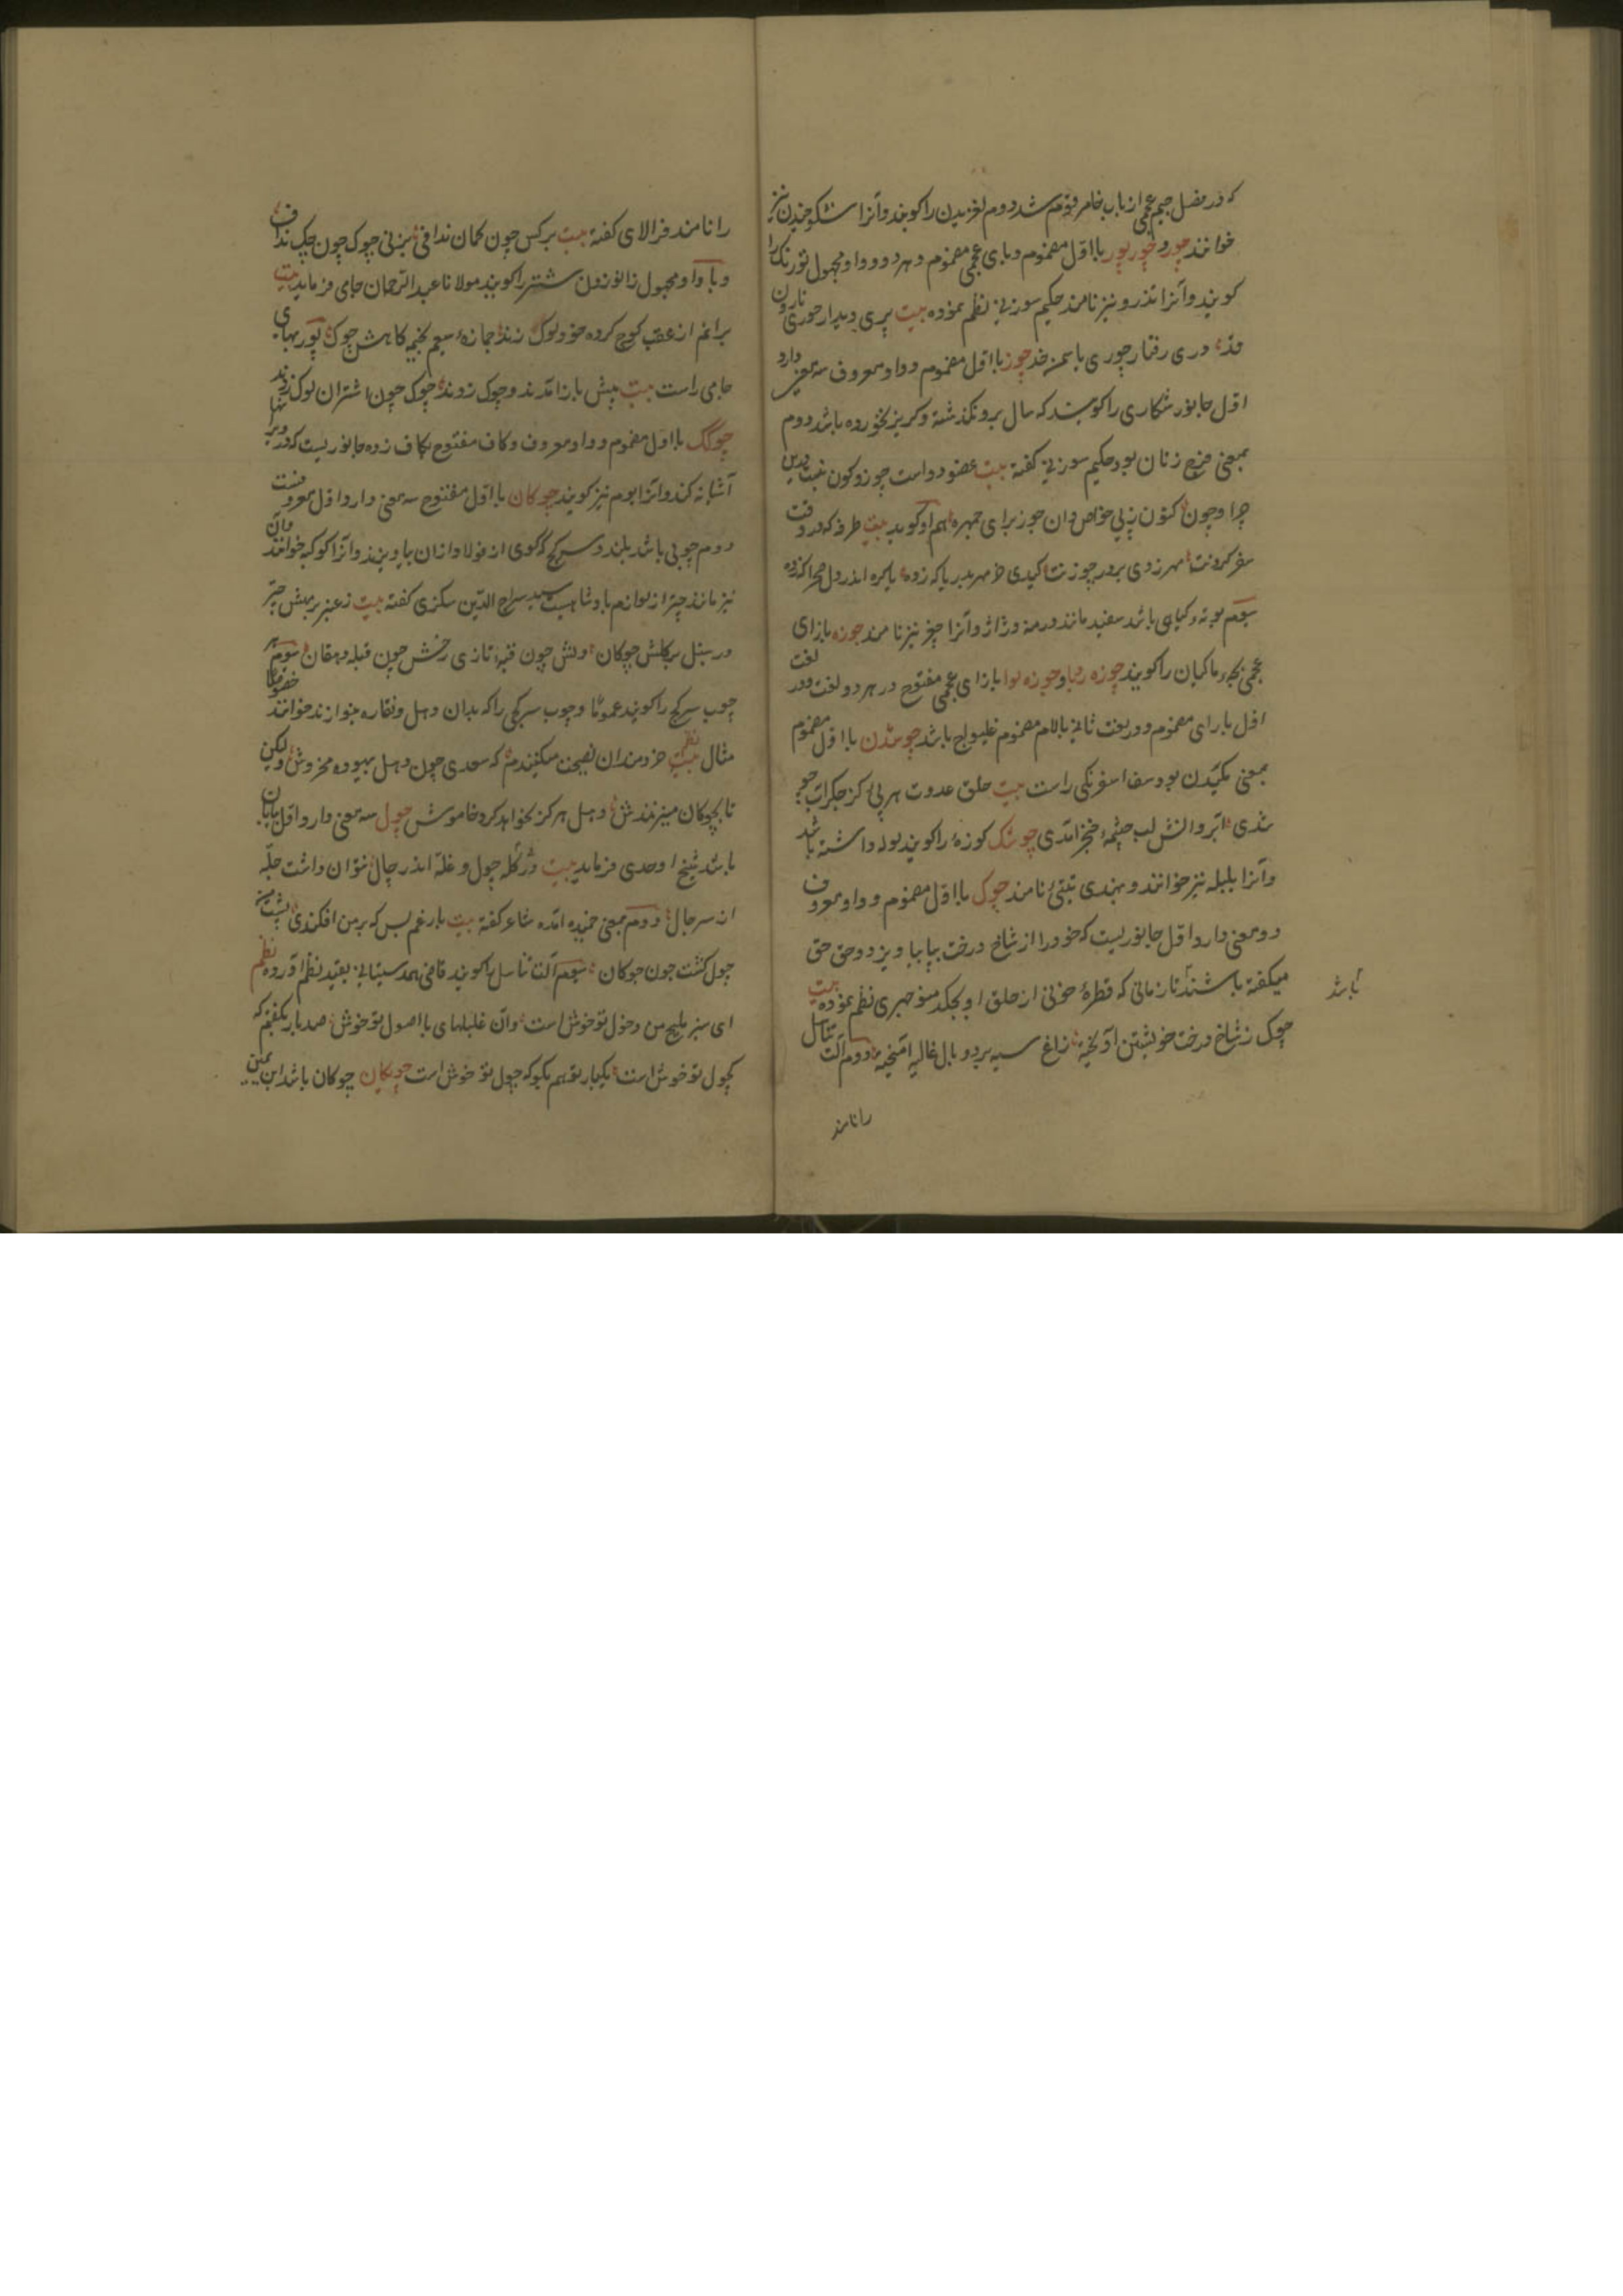 که در فصل جیم عجمی از باب خا مرقوم شد دوم لغزیدن را کویند وآنرا شکوخیدن نیز
خوانند چور و چور پور با اول مضموم و بای عجمی مضموم و هر دو واو مجهول تورنک را
کویند وآنرا تذرو نیز نامند حکیم سوزنی نظم نموده بیت پری دیدار حوری نارون
قد دری رفتار چوری یاسمن خد چوز با اول مضموم و واو معروف سه معنی دارد
اول جانور شکاری را کویند که سال برو نکذشته و کریز نخورده باشد دوم
بمعنی فرج زنان بود حکیم سوزنی کفته بیت عضو دواست چوز و کون
چرا و چون کنون نه پی خواص دان چوز برای جمهره هم او کوید بیت طرفه که در وقت
سفر کردنت مهر زدی برور چوز
سوم بوته و کیاهی باشد سفید مانند درمنه و ژاژ وآنرا چغز نیز نامند چوزه بازای
عجمی بچه ماکیان را کویند چوزه ربا و چوزه لوا بازای عجمی مفتوح در هر دو لغت و در لغت
اول بارای مضموم و در لغت ثانی بالام مضموم غلیواج باشد چوشیدن با اول مضموم
بمعنی مکیدن بود سیف اسفرنکی راست بیت حلق عدوت هر پی کز جکر آب جو
شدی ابر والش لب چشمه خنجر آمدی چوشک کوزه را کویند لوله داشته باشد
وآنرا بلبله نیز خوانند و بهندی تتی نامند چوک با اول مضموم و واو معروف
دو معنی دارد اول جانوریست که خود را از شاخ درخت بیاویزد و حق حق
میکفته باشند تا زمانی که قطره خونی از حلق او بچکد منوچهری نظم نموده بیت
باشد
چوک ز شاخ درخت خویشتن آویخته زاغ سیه بر دو بال غالیه آمیخته دوم آلت تناسل
را نامند
را نامند فرالاوی کفته بیت برکس چون کمان ندافی بزنی چوک چون چک نداف
و با واو مجهول زانو زدن شتر را کویند مولانا عبدالرحمان جامی فرماید بیت
برانم از عقب کوچ کرده خود لوک زند جمازه سیم بخیمه کاهش چوک پور بهای
جامی راست بیت پیش باز آمدند و چوک زوند چوک چون اشتران لوک زوند
چوکک با اول مضموم و واو معروف و کاف مفتوح بکاف زده جانوریست که در ویرانها
آشیانه کند وآنرا بوم نیز کویند چوکان با اول مفتوح سه معنی دارد اول معروفست
دوم چوبی باشد بلند و سرکج که کوی از فولاد از ان بیاویزند وآنرا کوکبه خوانند وآن
نیز مانند چتر از لوازم پادشاهیست سید سراج الدین سکزی کفته بیت ز عنبر بر مهش چتر
و ز سنبل بر کلش چوکان دلش چون قبه تازی رخش چون قبله دهقان سوم هر
چوب سرکج را کویند عموما و چوب سرکجی را که بدان دهل و نقاره بنوازند خوانند خصوصا
مثال نظم بیت خردمندان نصیحت میکنندم که سعدی چون دهل بیهوده مخروش ولیکن
تا بچوکان میزنندش دهل هرکز نخواهد کرد خاموش چول سه معنی دارد اول بیابان
باشد شیخ اوحدی فرماید بیت در کله چول و غله اندر چال نتوان داشت جله
از سر حال دوم بمعنی خمیده آمده شاعر کفته بیت بار غم بس که بر من افکندی پشت من
چول کشت چون چوکان سوم آلت تناسل را کویند قاضی احمد سیستانی بقید نظم آورده نظم
ای سبز ملیح من دخول تو خوش است وآن غلبلهای با اصول تو خوش صد بار بکفتم که
کچول تو خوش است یکبار تو هم بکو که چول تو خوش است چویکان چوکان باشد ابن یمین